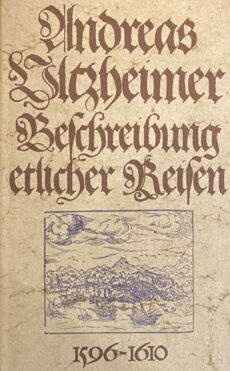 Andreas
Ultzheimer
Beschreibung
etlicher Reisen
1596-1610